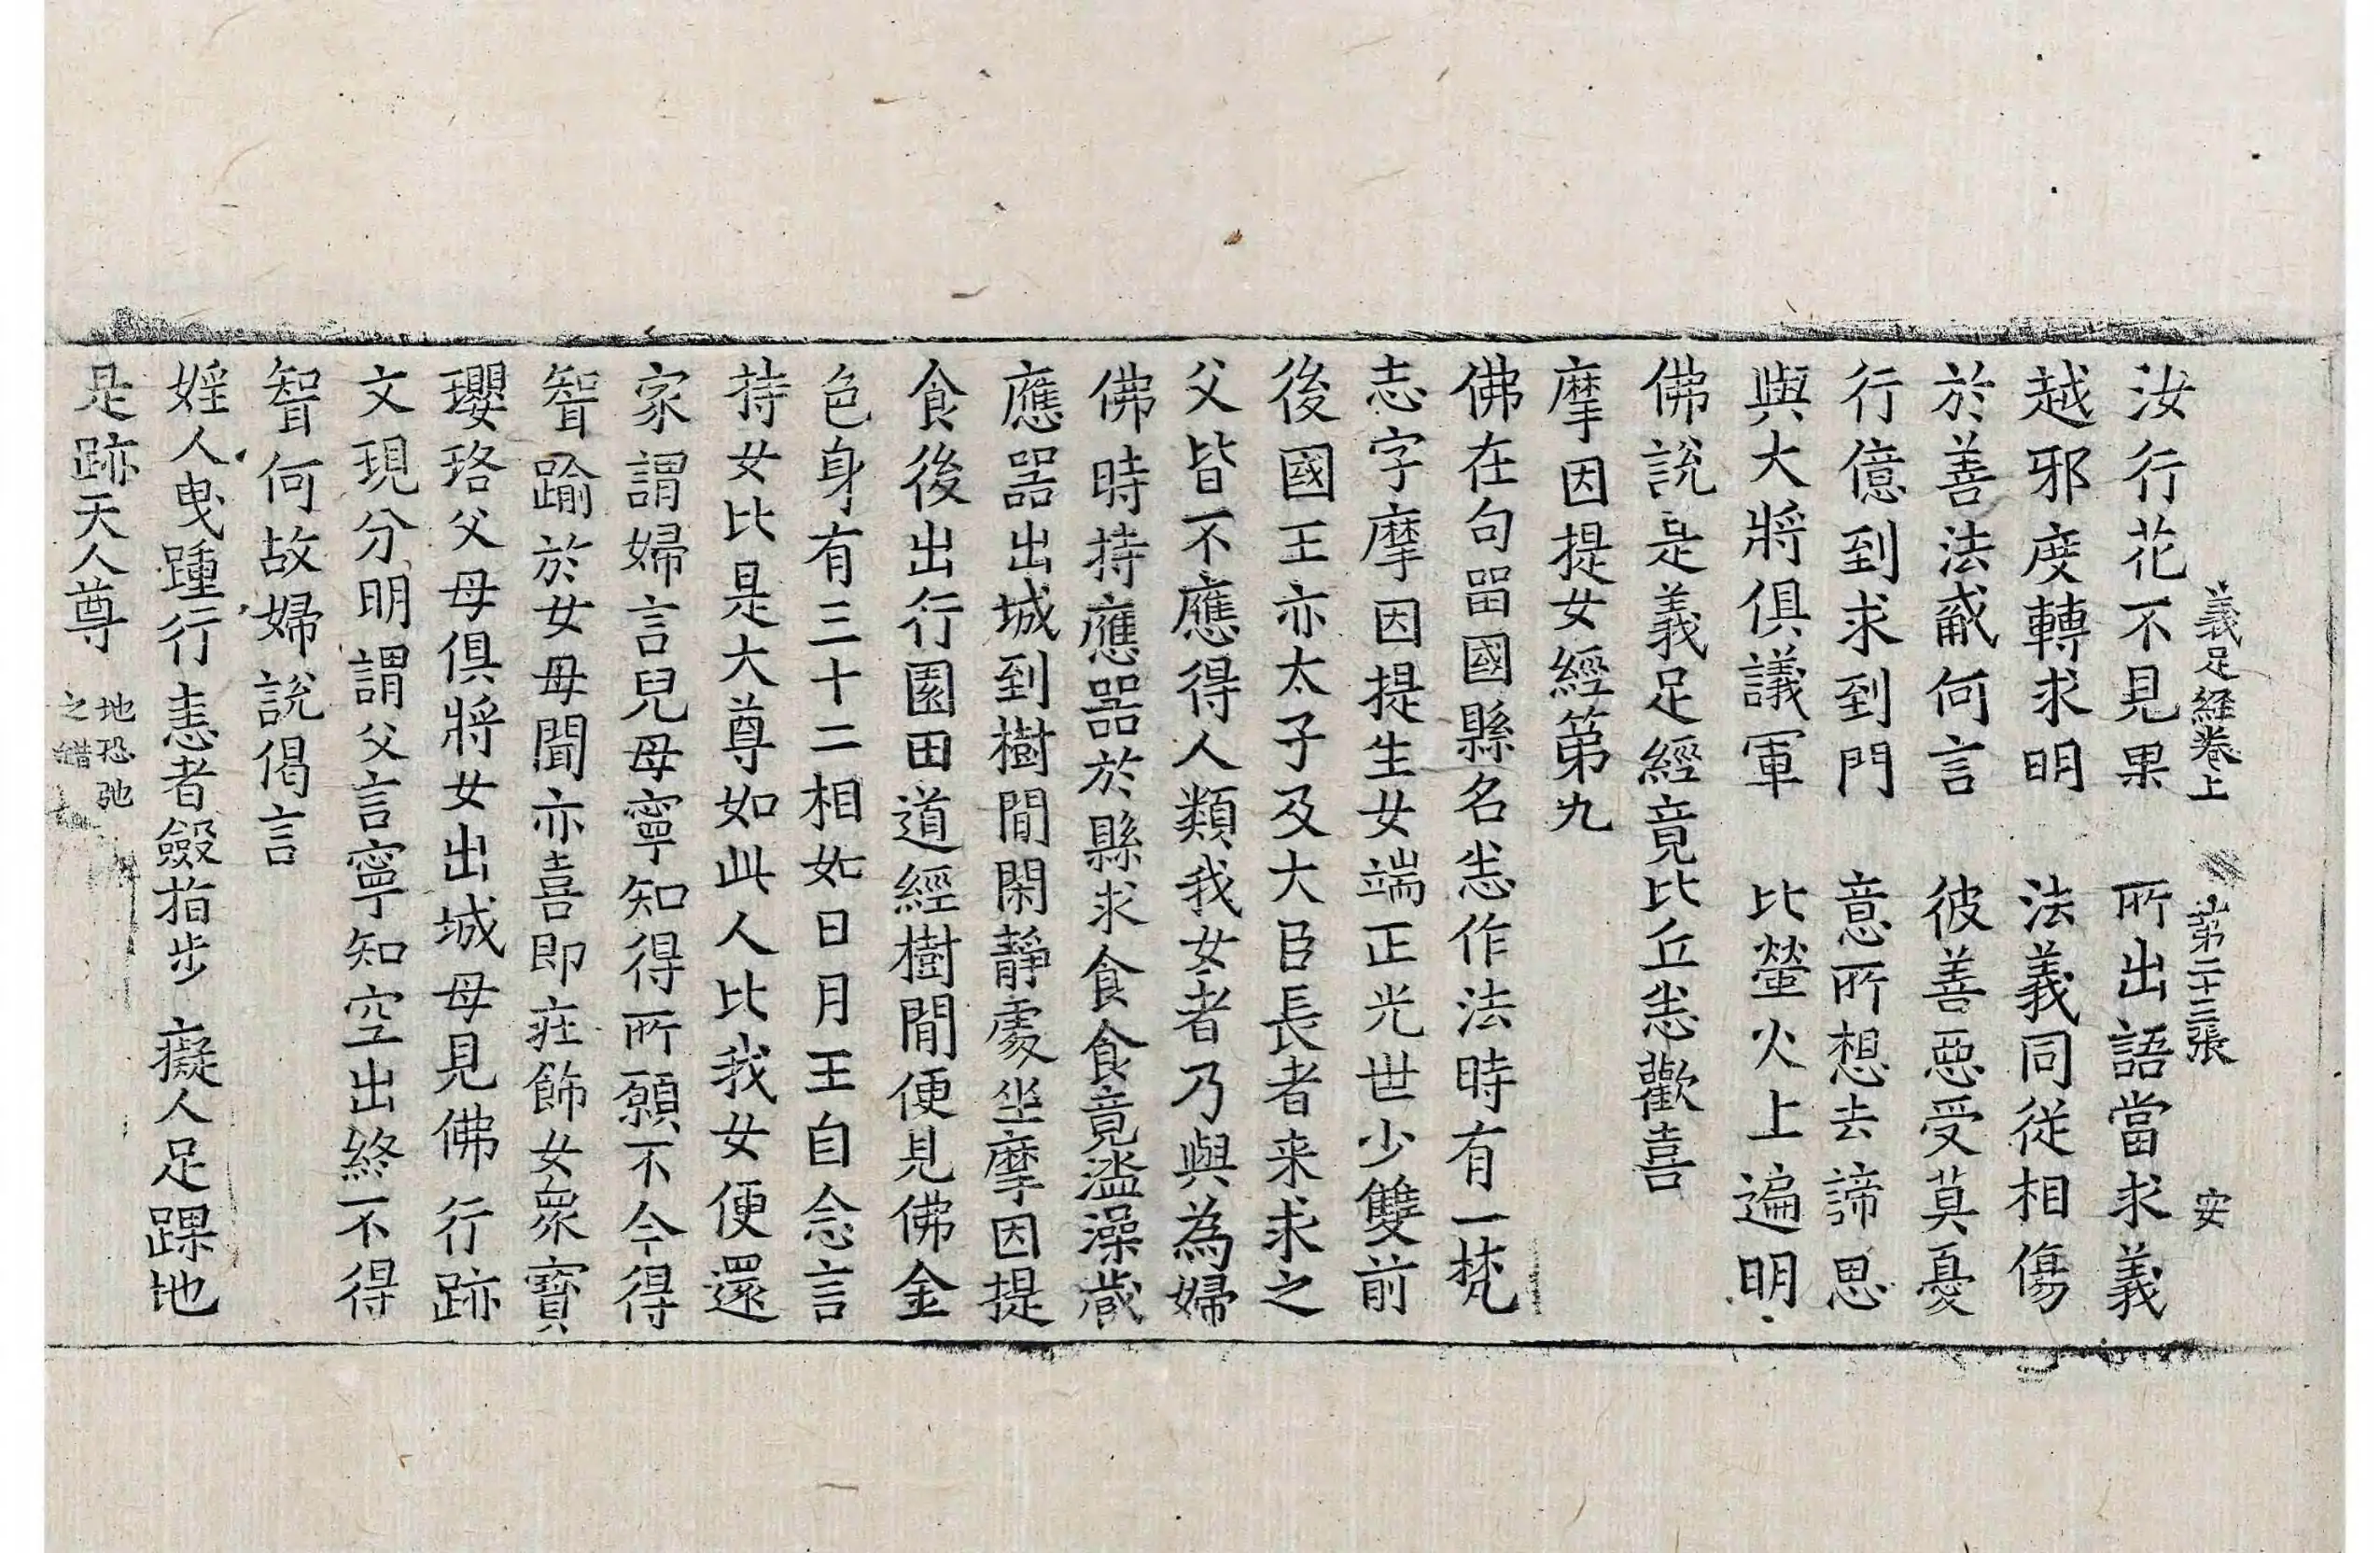 義足經卷上 第二十三張 安
汝行花不見果 所出語當求義
越邪度轉求明 法義同從相傷
於善法戒何言 彼善惡受莫憂
行億到求到門 意所想去諦思
與大將俱議軍 比螢火上遍明
佛說是義足經竟比丘悉歡喜
摩因提女經第九
佛在句留國縣名悉作法時有一梵
志字摩因提生女端正光世少雙前
後國王亦太子及大臣長者来求之
父皆不應得人類我女者乃與為婦
佛時持應器於縣求食食竟盪澡藏
應器出城到樹閒閑靜處坐摩因提
食後出行園田道經樹閒便見佛金
色身有三十二相如日月王自念言
持女比是大尊如此人比我女便還
家謂婦言兒母寧知得所願不今得
智踰於女母聞亦喜即莊飾女衆寶
瓔珞父母俱將女出城母見佛行跡
文現分明謂父言寧知空出終不得
智何故婦說偈言
婬人曳踵行 恚者斂指步 癡人足踝地
是跡天人尊 地恐弛之錯